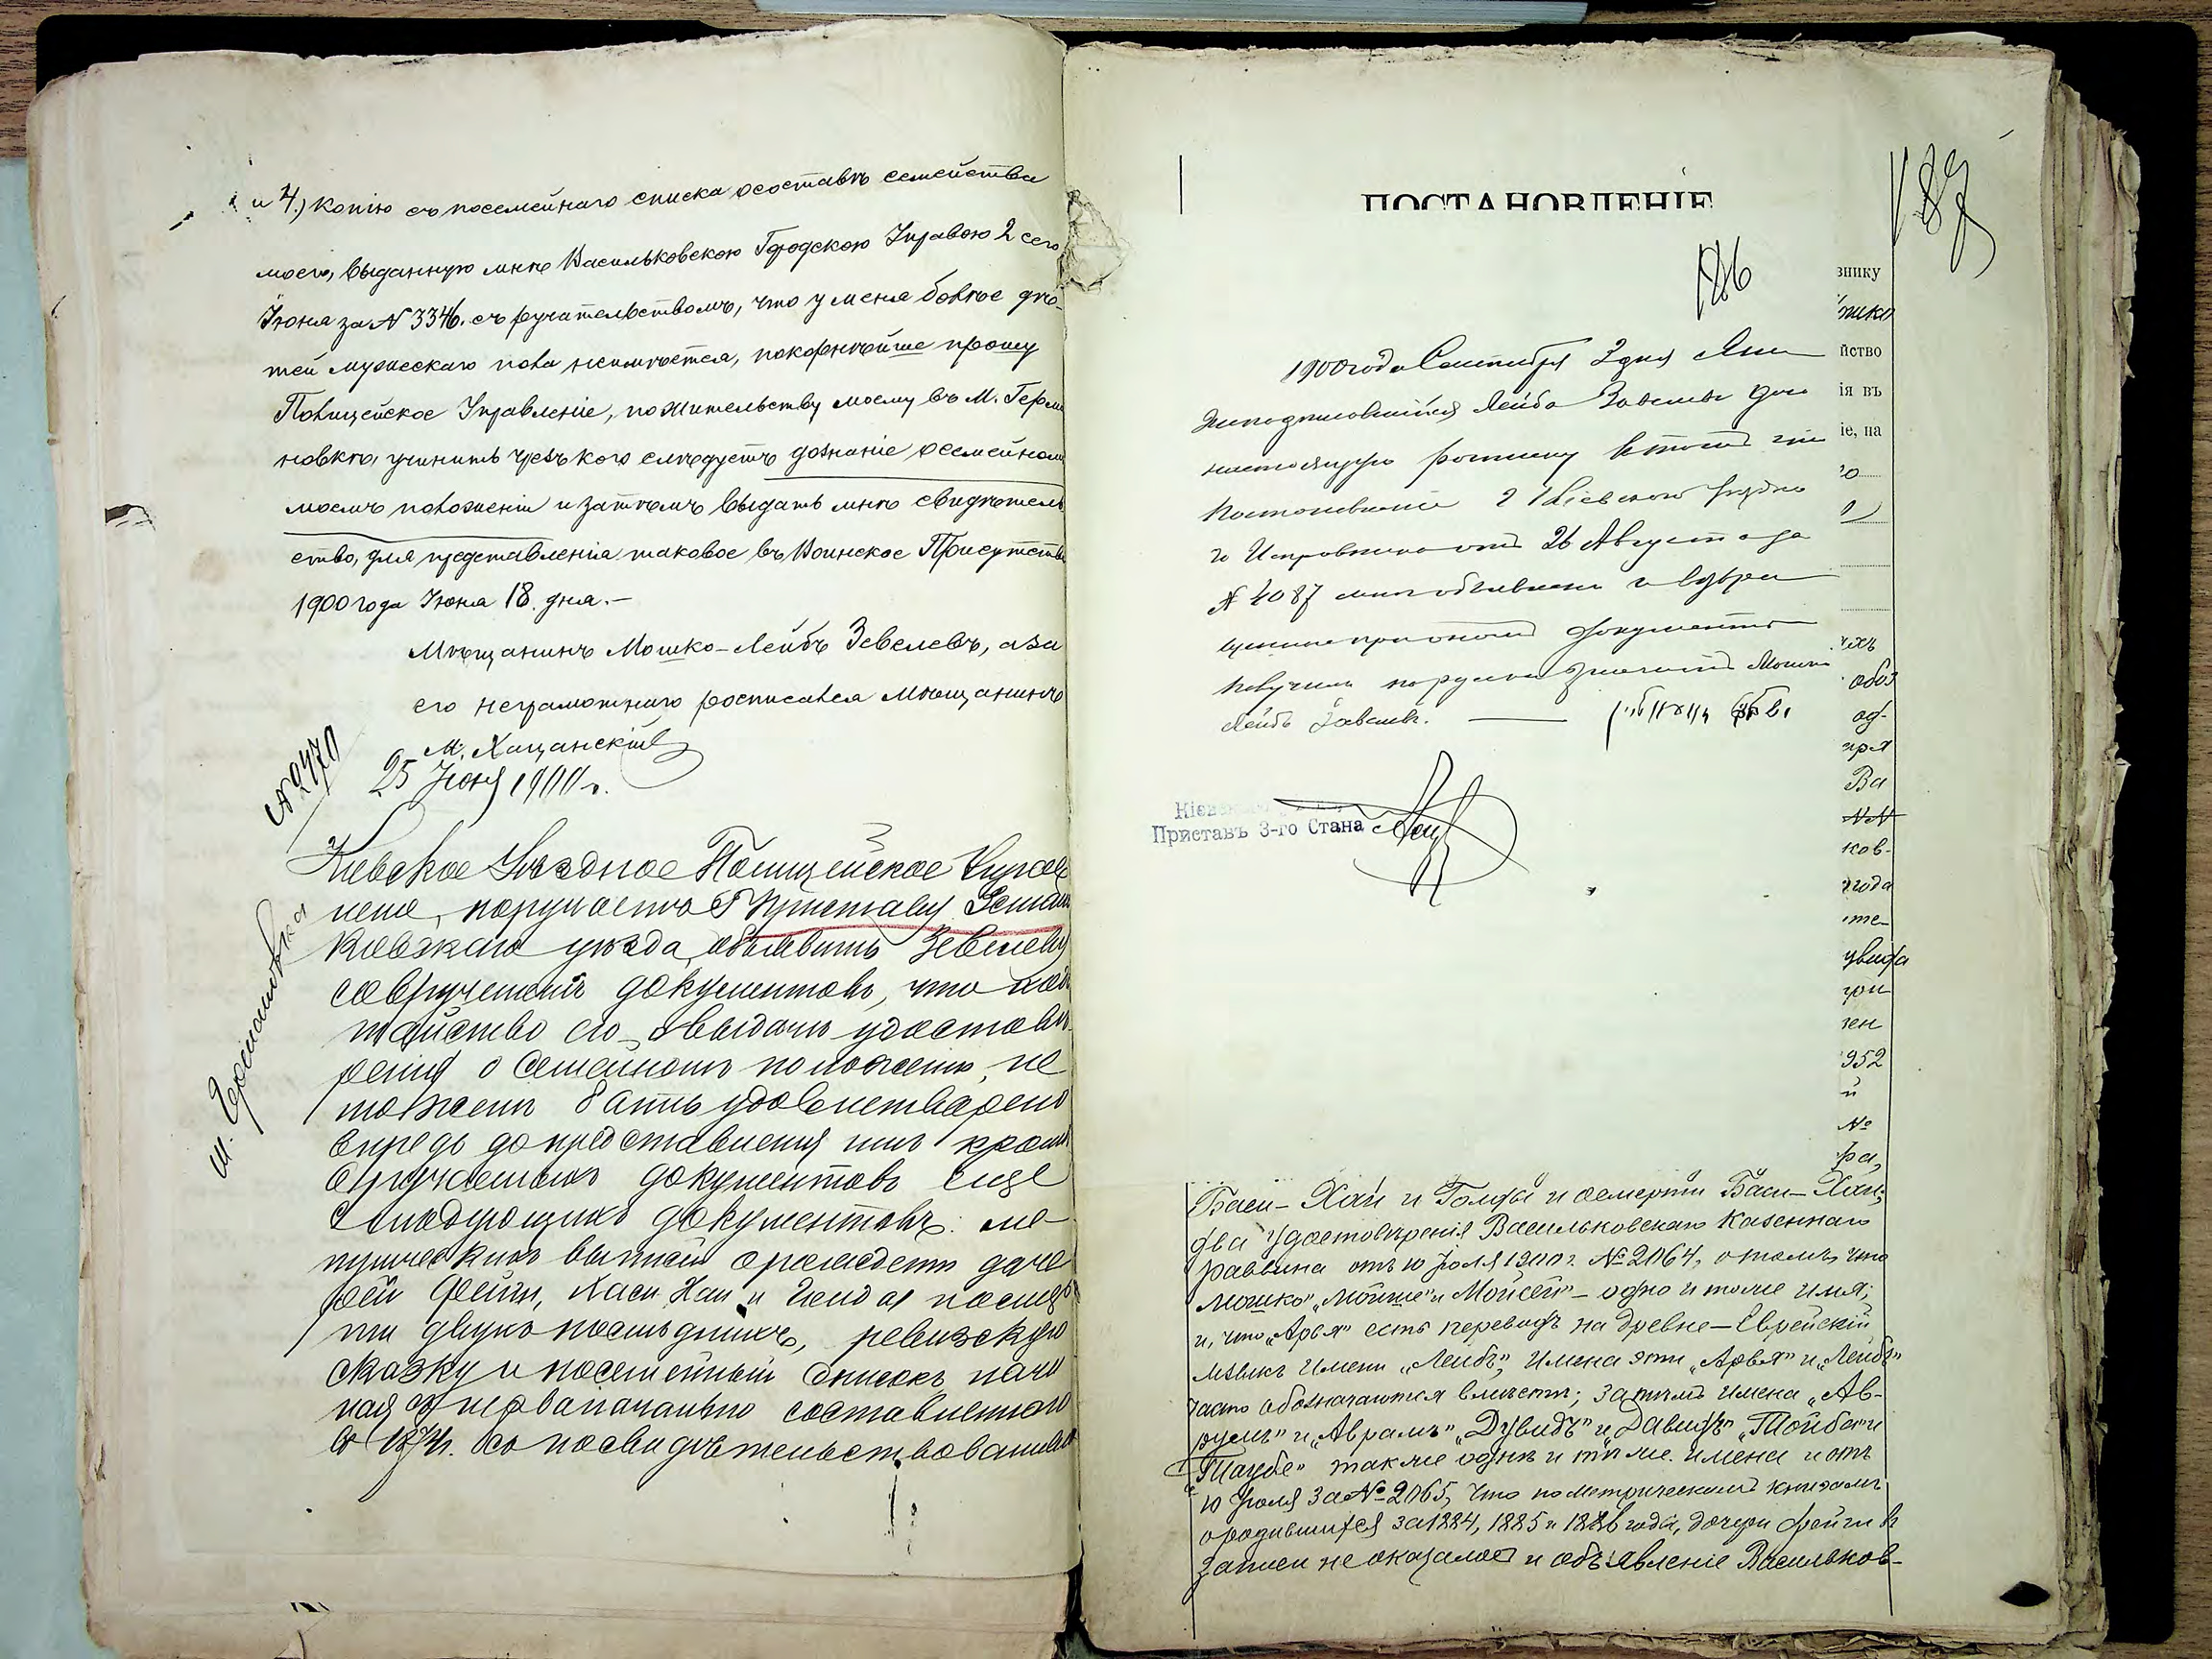 и 4.) копію съ посемейнаго списка о составѣ семейства
моего, выданную мнѣ Васильковскою Городскою Управою 2 сего
Іюня за № 3346. съ ручательствомъ, что у меня болѣе дѣ-
тей мужескаго пола неимѣется, покорнѣйше прошу
Полицейское Управленіе, по жительству моему въ М. Герма
новкѣ, учинить чрезъ кого слѣдуетъ дознаніе о семейномъ
моемъ положеніи и затѣмъ выдать мнѣ свидѣтель
ство, для представленія таковое въ Воинское Присутстві
1900 года Іюня 18. дня.-
Мѣщанинъ Мошко-Лейбъ Зевелевъ, а за
его неграмотнаго росписался мѣщанинъ
М. Хацанскій
25 Іюня 1900 г.
№ 2470
м. Германовка
Кіевское Уѣздное Полицейское Управ
леніе, поручаетъ Г Приставу 3 стана
Кіевскаго уѣзда, объявить Зевелеву
со врученіемъ документовъ, что хода
тайство его о выдачѣ удостовѣ
ренія о семейномъ положеніи, не
можетъ быть удовлетворено
впредь до представленія имъ кромѣ
вручаемыхъ документовъ еще
слѣдующихъ документовъ: ме-
трическихъ выписей о рожденіи доче
рей Фейги, Хаси Хаи и смерти
двухъ послѣднихъ, ревизскую
сказку и посемейный списокъ начи
ная съ первоначально составленнаго
въ 1874 г.
ПОСТАНОВЛЕНІЕ
186
187
1900 года Сентября 2 дня Я ни
жеподписавшійся Лейба Зевелевъ даю
настоящую росписку въ томъ что
постановленіе Г Кіевскаго Уѣздна
го Исправника отъ 26 Августа за
№ 4087 мнѣ объявлено и возвра
щенные при ономъ документы
получилъ
Лейбъ Зевелевъ.
Кіевск
Приставъ 3-го Стана
знику
йство
ія въ
іе, на
го
ихъ
обоз
од-
аря
Ва
№№
ков-
года
те-
увида
при
ген
952
й
№
ра,
Баси-Хаи и Голды и о смерти Баси-Хаи;
два удостовѣренія Васильковскаго Казеннаго
раввина отъ 10 Іюля 1900 г. № 2064, о томъ, что
Мошко" „Мойше" и Мойсей" - одно и тоже имя;
и, что „Арья" есть переводъ на древне-Еврейскій
языкъ имени „Лейбъ", имена эти „Арья" и „Лейбъ"
часто обозначаются вмѣстѣ; затѣмъ имена „Ав-
румъ" и „Аврамъ" „Дувидъ" и „Давидъ" „Тойба" и
„Таубе" также однѣ и тѣ же имена и отъ
10 Іюля за № 2065, что по метрическимъ книгамъ
о родившихся за 1884, 1885 и 1886 года, дочери Фейги въ
записи не оказалось и объявленіе Васильков-